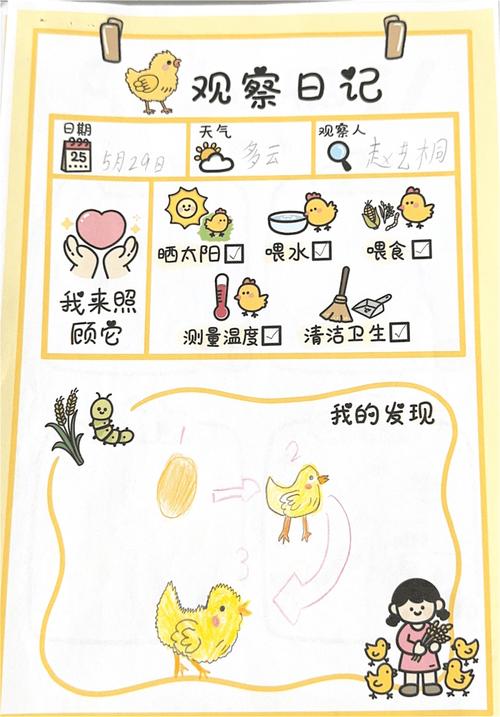 观察日记
日期 天气 观察人
25 5月29日 多云 赵艺桐
晒太阳 喂水 喂食
我来照
顾它
测量温度 清洁卫生
我的发现
1
2
3